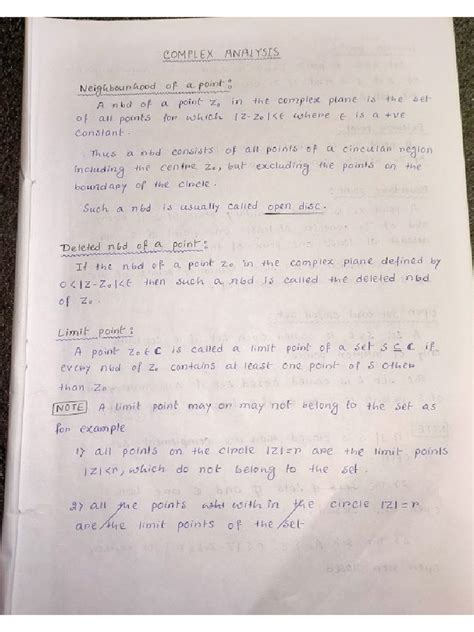 COMPLEX ANALYSIS
Neighbourhood of a point:
A nbd of a point Z₀ in the complex plane is the set
of all points for which |Z-Z₀|<ε where ε is a +ve
constant.
Thus a nbd consists of all points of a circular region
including the centre Z₀, but excluding the points on the
boundary of the circle.
Such a nbd is usually called open disc.
Deleted nbd of a point:
If the nbd of a point Z₀ in the complex plane defined by
0<|Z-Z₀|<ε then such a nbd is called the deleted nbd
of Z₀.
Limit point:
A point Z₀ ∈ C is called a limit point of a set S ⊆ C if
every nbd of Z₀ contains at least one point of S other
than Z₀.
NOTE A limit point may or may not belong to the set as
for example
1) all points on the circle |Z|=r are the limit points
|Z|<r, which do not belong to the set.
2) all the points with in the circle |Z|=r
are the limit points of the set